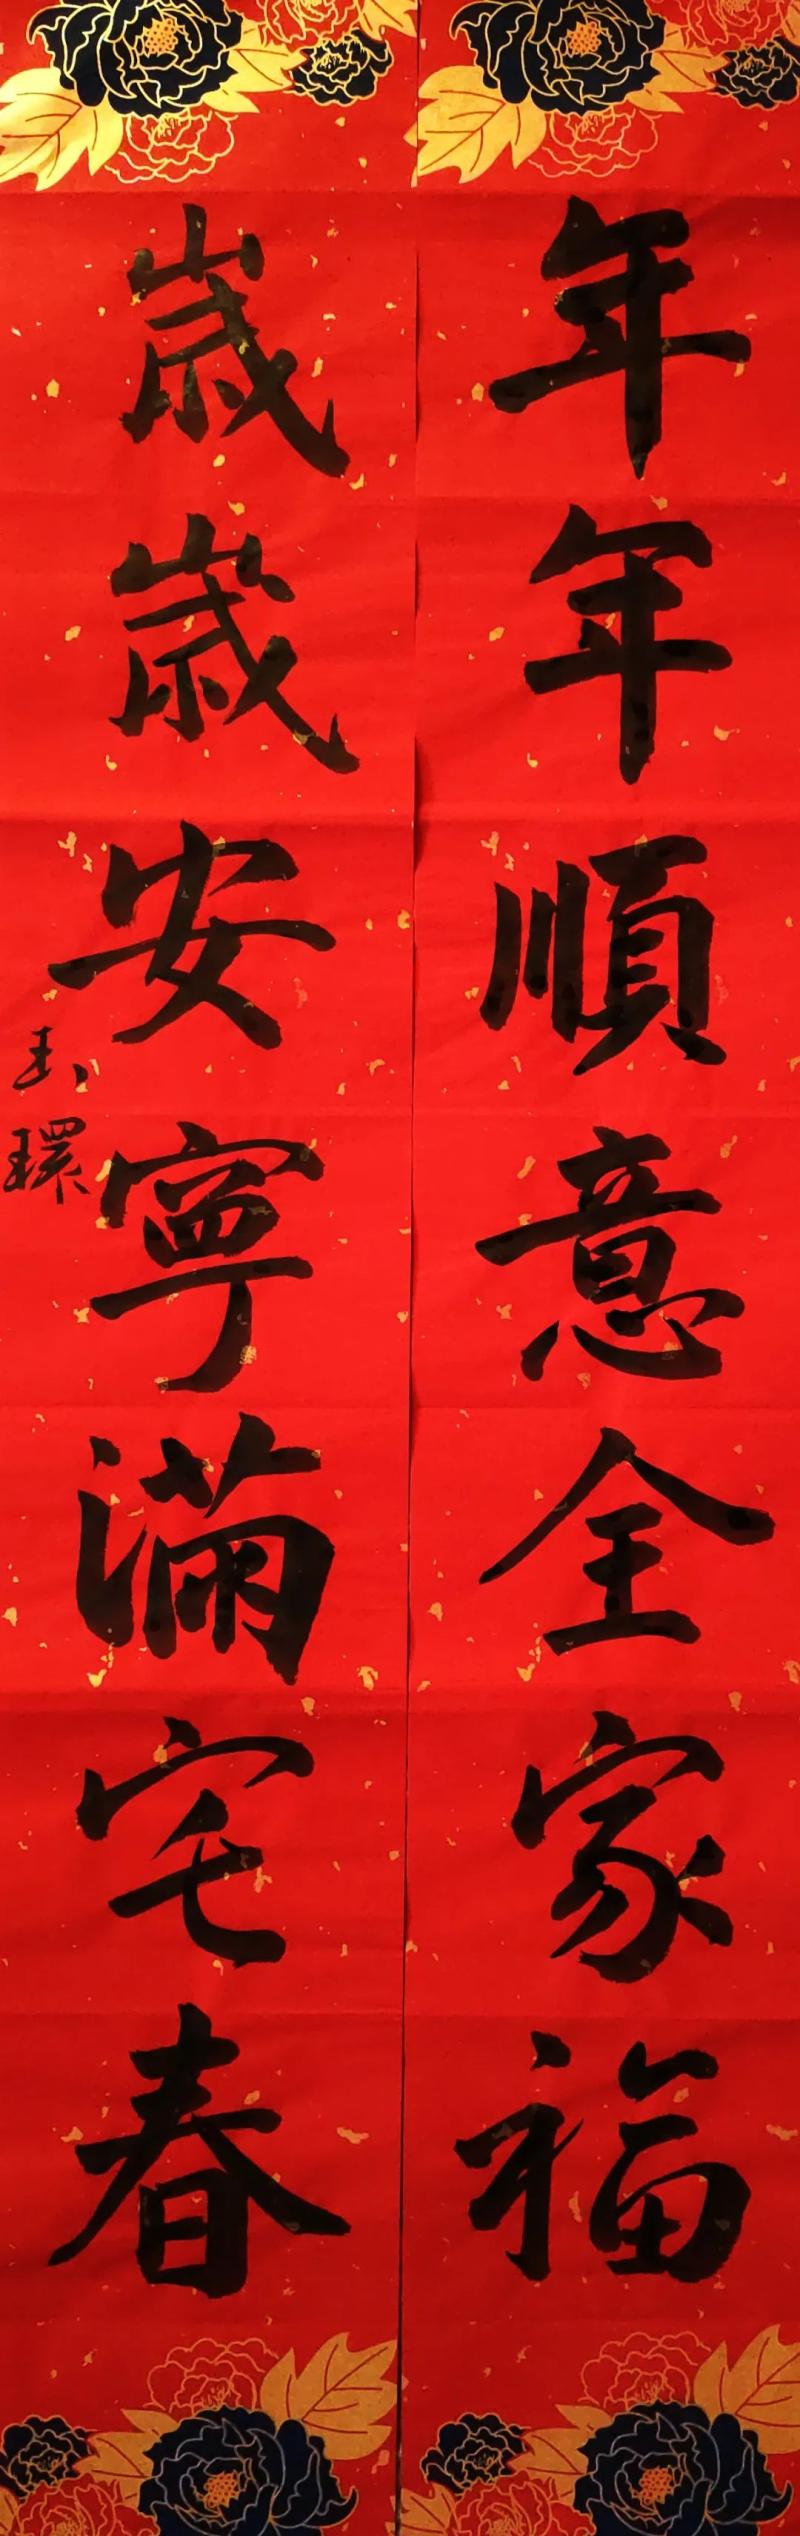 年年順意全家福
歲歲安寧滿宅春
玉環